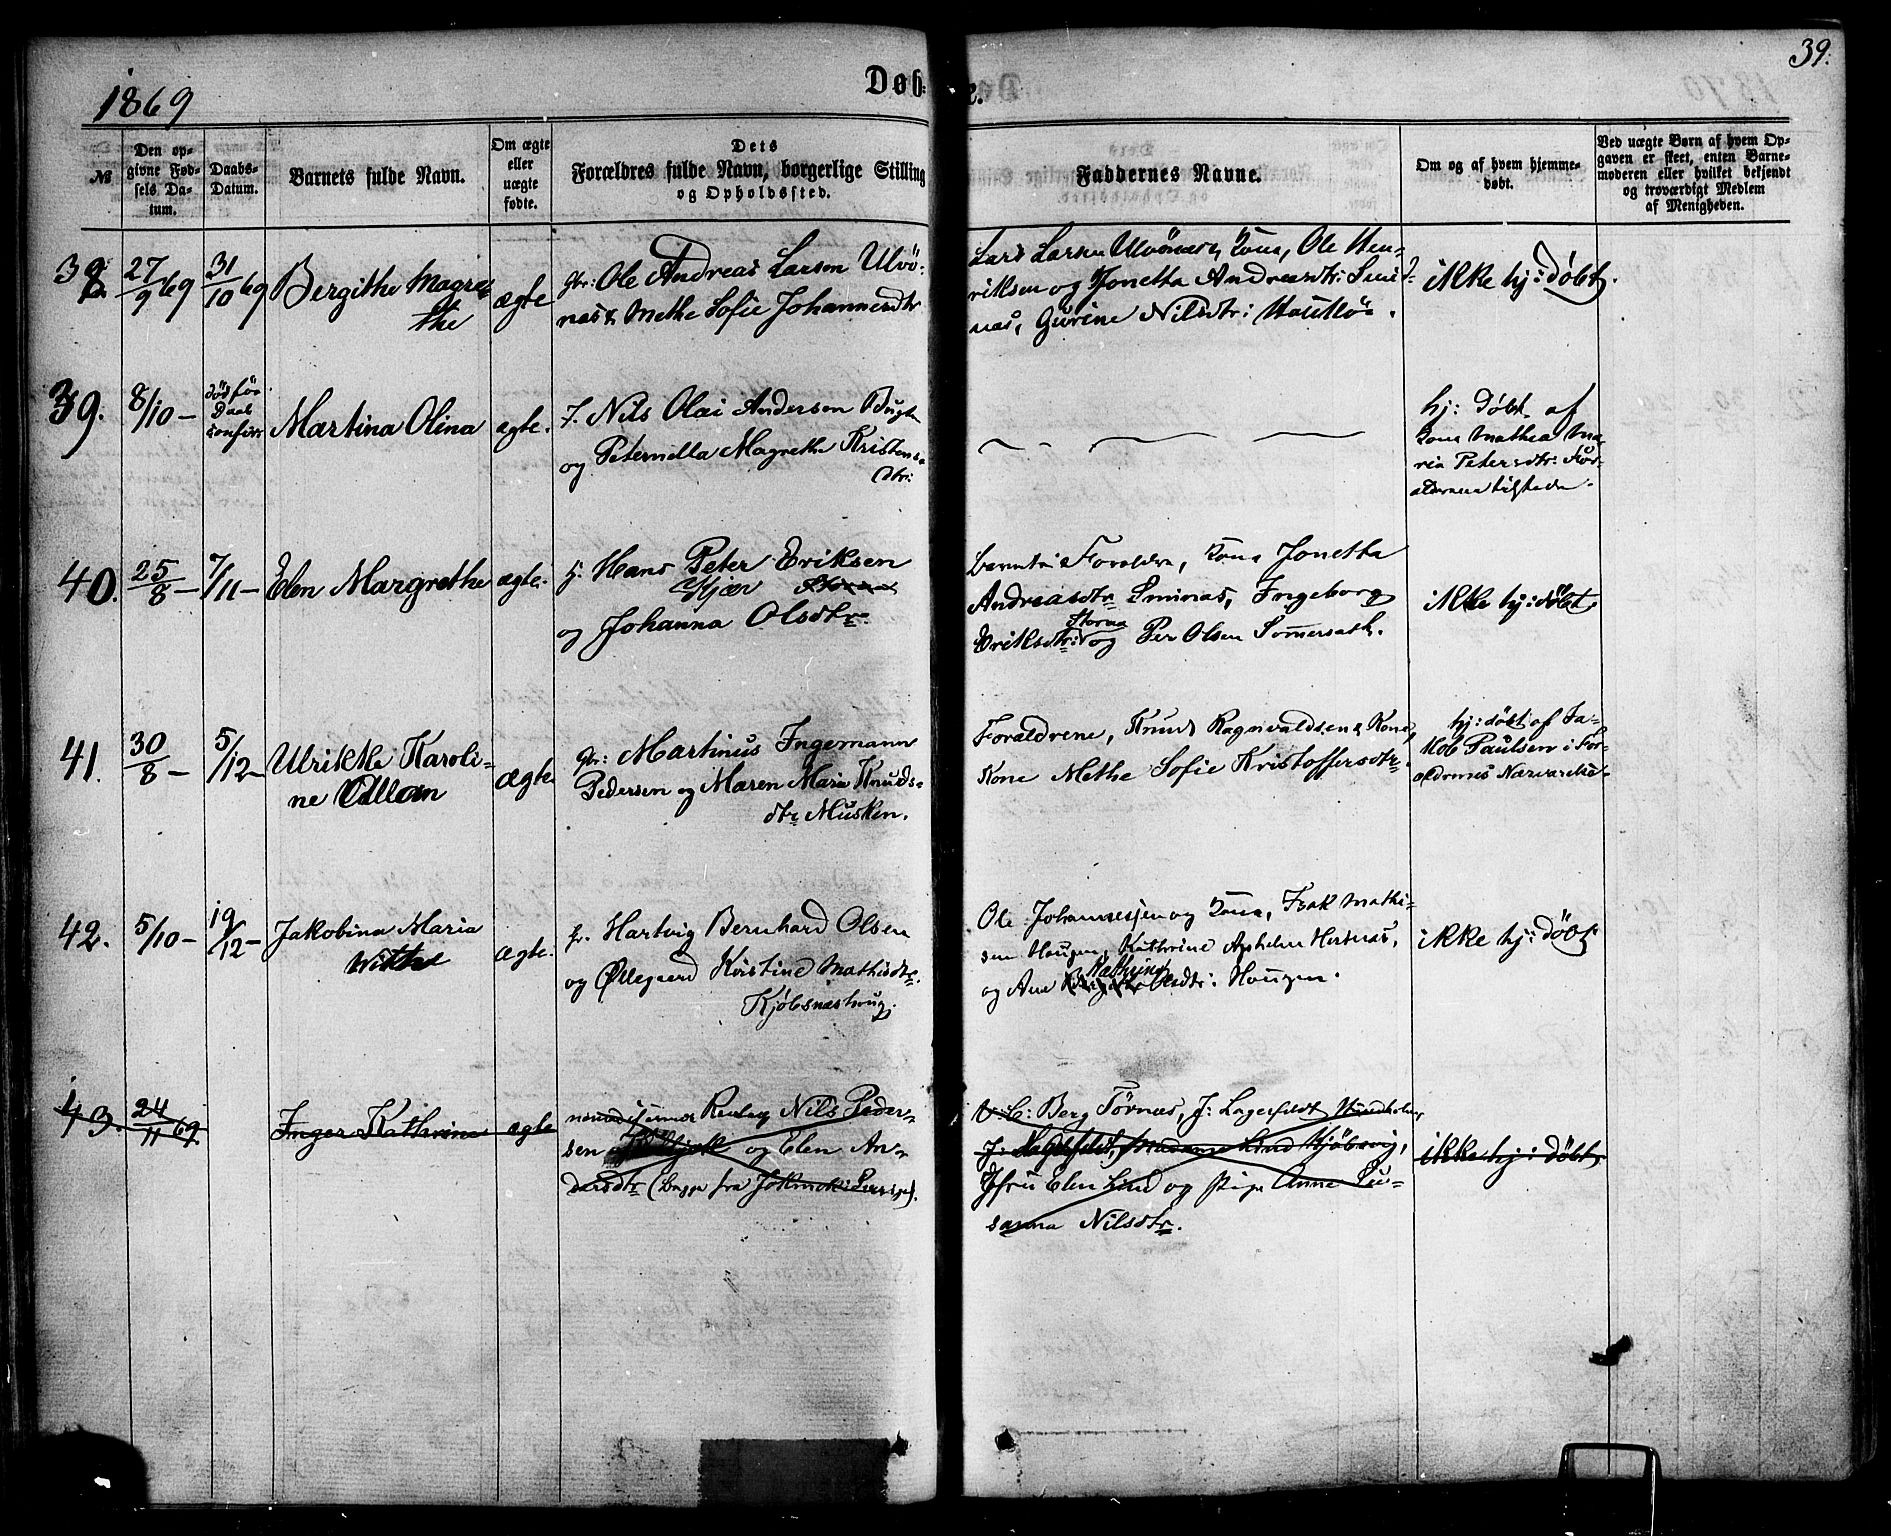 39.
1869
Døb-
e.
№
Den op-
givne Fød-
sels Da-
tum.
Daabs-
Datum.
Barnets fulde Navn.
Om ægte
eller
uægte
fødte.
Dets
Forældres fulde Navn, borgerlige Stilling
og Opholdssted.
Faddernes Navne.
Om og af hvem hjemme-
døbt.
Ved uægte Børn af hvem Op-
gaven er skeet, enten Barne-
moderen eller hvilket bekjendt
og troværdigt Medlem
af Menigheden.
38
27/9 69
31/10 69
Bergithe Magre-
the
ægte
Gbr: Ole Andreas Larsen Ulvö-
næs & Methe Sofie Johannesdtr
Lars Larsen Ulvönæs, Kona, Ole Hen-
riksen og Jonetha Andreasdtr: Smi-
næs, Gurine Nilsdtr:
ikke hj: döbt.
39.
8/10 –
död för
Daab
Martina Olina
ægte.
F. Nils Olai Andersen Bugten
og Peternella Magrethe Kristens-
dtr:
hj: döbt af
Kona Mathea Ma-
ria Petersdtr: For-
ældrene tilstede.
40.
25/8 –
7/11 –
Elen Margrethe
ægte.
Hans Peter Eriksen
Kjær
og Johanna Olsdtr.
Barnets Forældre, Kona Jonetha
Andreasdtr Sminæs, Ingeborg
Eriksdtr: og Per Olsen Sommersæth.
ikke hj: döbt.
41.
30/8 –
5/12 –
Ulrikke Karoli-
ne
ægte
Gbr: Martinus Ingemann
Pedersen og Maren Maria Knuds-
dtr Musken.
Forældrene, Knud Ragnvaldsen & Kone,
Kone Methe Sofie Kristoffersdtr.
hj: döbt af Ja-
kob Paulsen i For-
ældrenes Nærværelse.
42.
5/10 –
19/12 –
Jakobina Maria
ægte.
Hartvig Bernhard Olsen
og Øllegaard Kristine Mathisdtr.
Ole Johannesen og Kona, Isak Mathi-
sen Haugen, Kathrine
og Ane Kathrine Olsdtr: Haugen.
ikke hj: döbt
43.
24/11 69.
Inger Kathrine
ægte
Nils Peder-
sen og Elen An-
dersdtr (Lapper fra Jokmok: Sverige).
Berg Törnæs, J: Lagerfeldt
J: Lagerfeldt, Madame Lind Kjöbsvig,
Jfru Elen Lind og pige Anne Su-
sanna Nilsdtr.
ikke hj: döbt